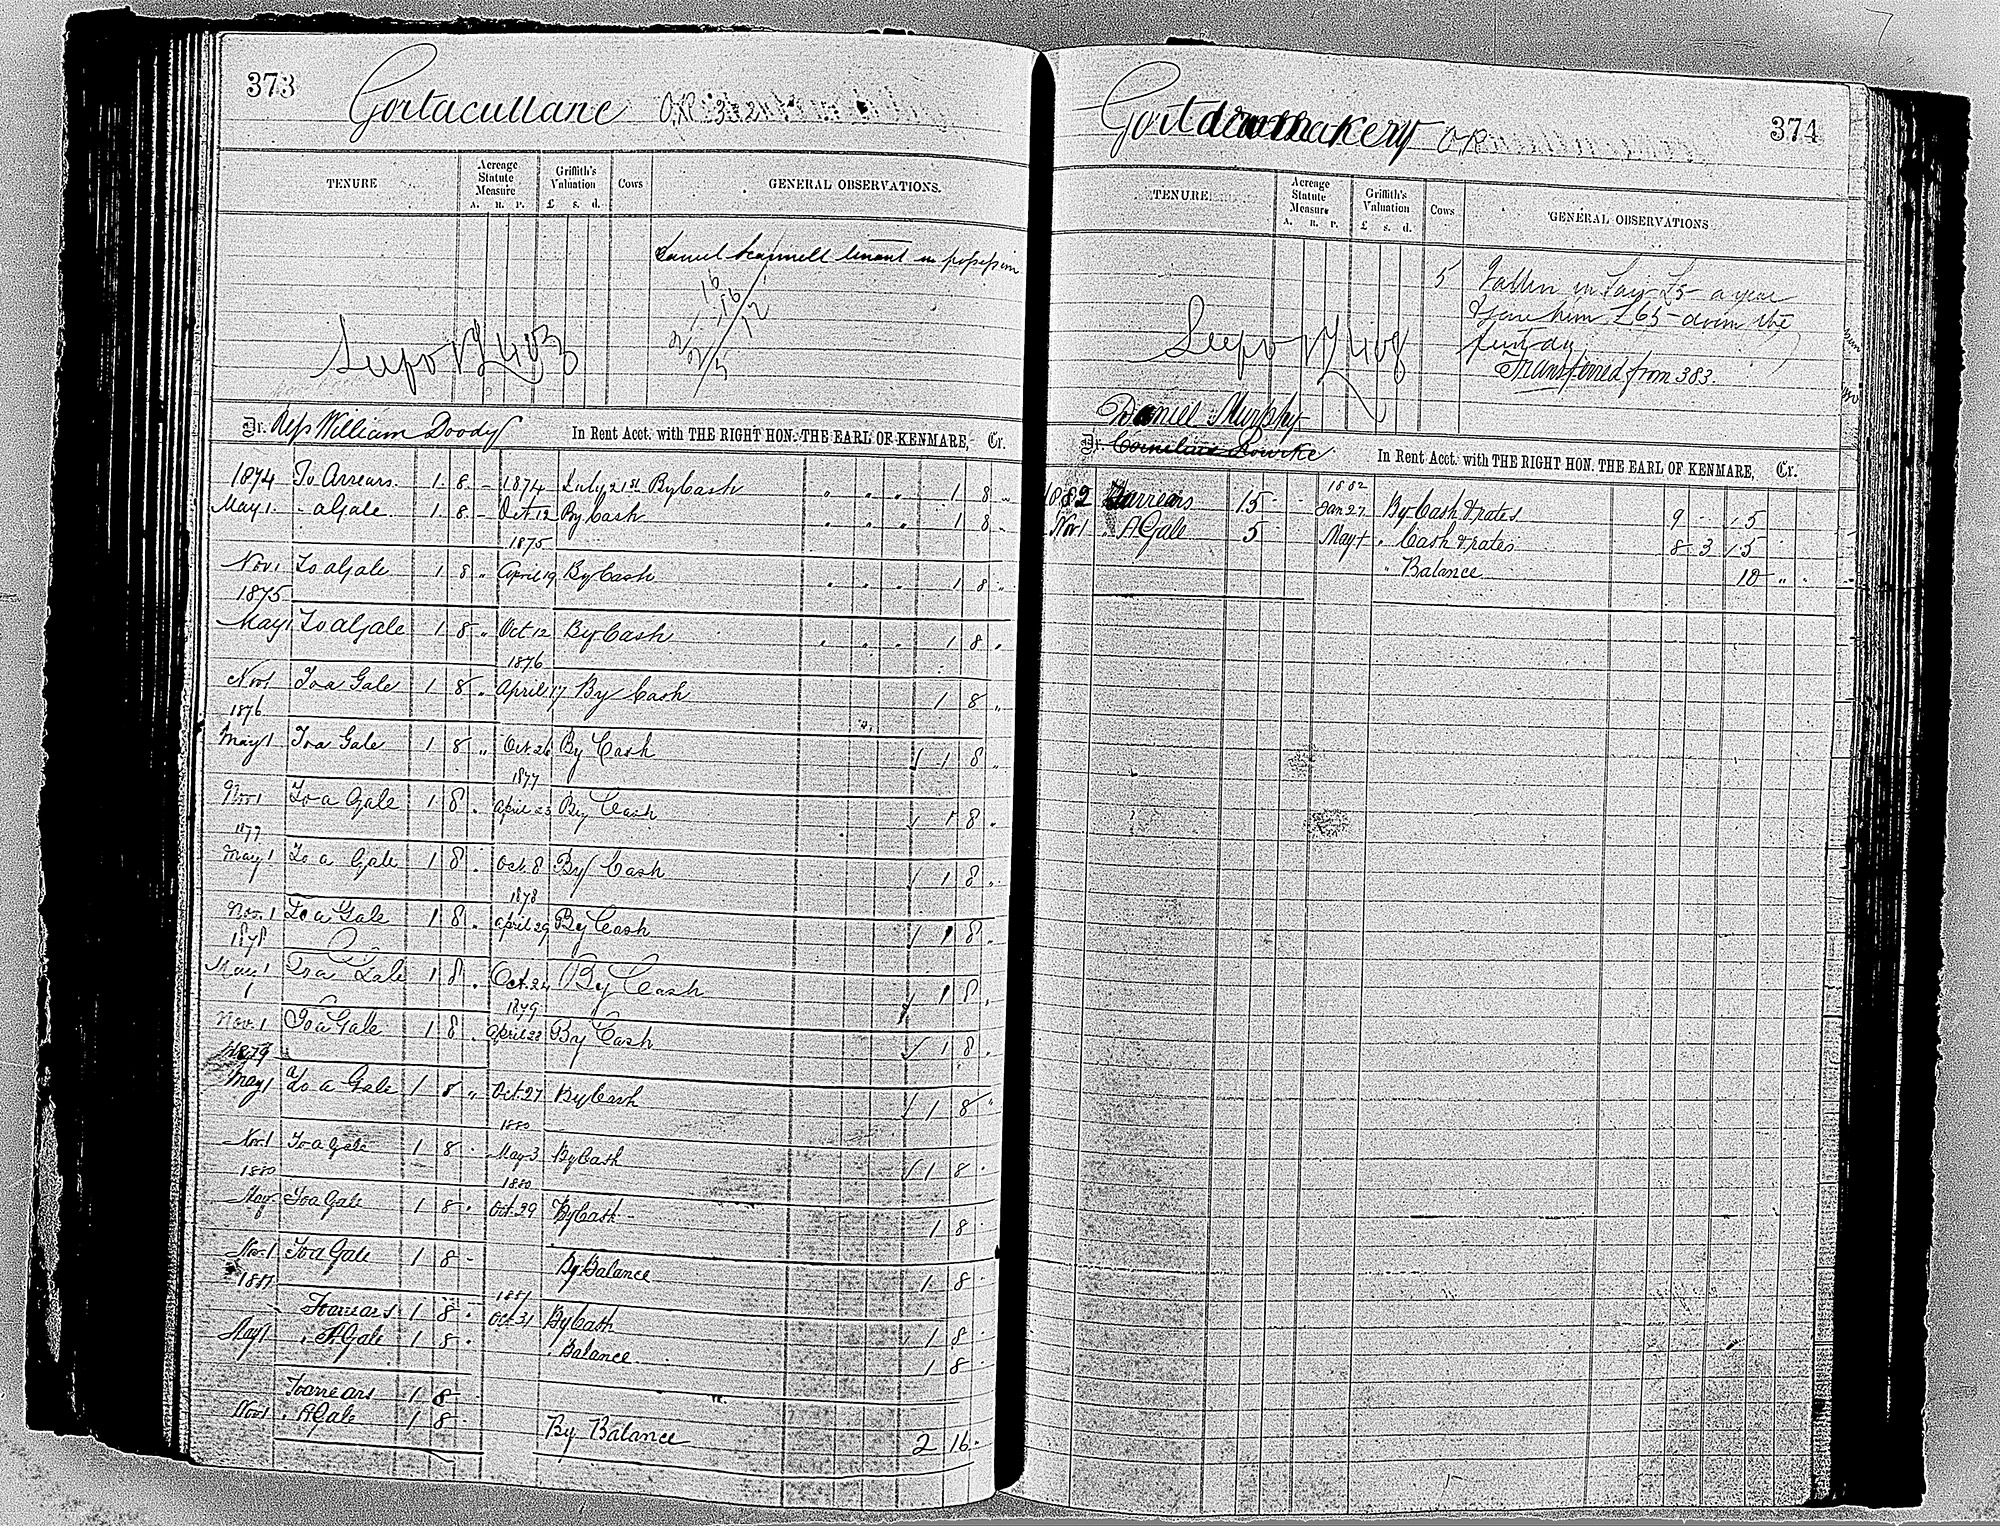 373
Gortacullane O.R.
TENURE
Acreage Statute Measure
A. R. P.
Griffith's Valuation
£ s. d.
Cows
GENERAL OBSERVATIONS.
Daniel Scannell tenant in possession
1 - 8 - 16
Dr. Reps William Doody In Rent Acct. with THE RIGHT HON. THE EARL OF KENMARE, Cr.
1874 To Arrears. 1 8 - 1874 July 21st By Cash " " " 1 8 "
May 1. " a Gale 1 8 - Oct 12 By Cash " " " 1 8 "
1875
Nov 1 To a Gale 1 8 " April 19 By Cash " " " 1 8 "
1875
May 1 To a Gale 1 8 " Oct 12 By Cash " " " 1 8 "
1876
Nov 1 To a Gale 1 8 " April 17 By Cash 1 8 "
1876
May 1 To a Gale 1 8 " Oct 26 By Cash 1 8 "
1877
Nov 1 To a Gale 1 8 . April 23 By Cash 1 8 "
1877
May 1 To a Gale 1 8 . Oct. 8 By Cash 1 8 "
1878
Nov. 1 To a Gale 1 8 . April 29 By Cash 1 8 "
1878
May 1 To a Gale 1 8 . Oct. 24 By Cash 1 8 "
1879
Nov. 1 To a Gale 1 8 . April 28 By Cash 1 8 .
1879
May 1 To a Gale 1 8 " Oct. 27 By Cash 1 8 "
1880
Nov. 1 To a Gale 1 8 . May 3 By Cash 1 8 .
1880 1880
May To a Gale 1 8 . Oct. 29 By Cash 1 8 .
Nov. 1 To a Gale 1 8 - By Balance 1 8 .
1881 1881
To arrears 1 8 . Oct 31 By Cash 1 8 .
May 1 " A Gale 1 8 . " Balance 1 8 .
To arrears 1 8
Nov 1 " A Gale 1 8 . By Balance 2 16 .
374
O.R.
TENURE
Acreage Statute Measure
A. R. P.
Griffith's Valuation
£ s. d.
Cows
GENERAL OBSERVATIONS
5 Fallen in £5 a year
I gave him £65
Transferred from 383.
Daniel Murphy
Dr. Cornelius Rourke In Rent Acct. with THE RIGHT HON. THE EARL OF KENMARE, Cr.
1882
1882 To arrears 15 - - Jan 27 By Cash & rates 9 15
Nov 1 " A Gale 5 May 1 " Cash & rates 8 3 15
" Balance 10 " "